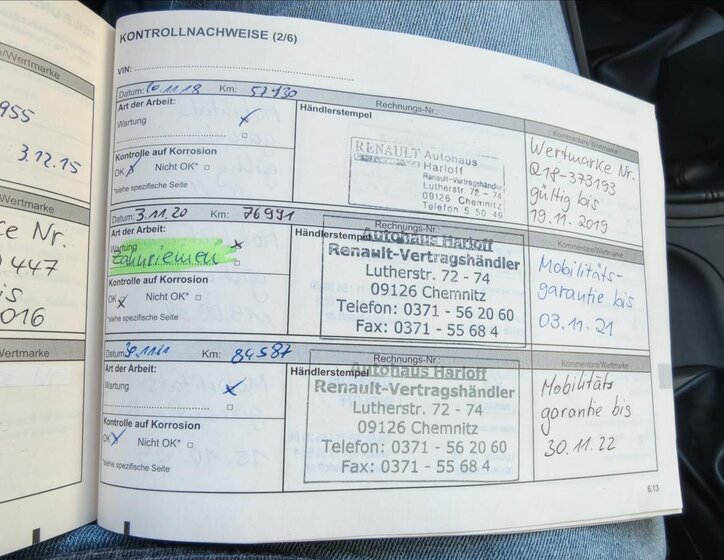 Wertmarke
955
3.12.15
Wertmarke
Nr.
447
is
016
Wertmarke
KONTROLLNACHWEISE (2/6)
VIN:
Datum: 20.11.18 Km: 57930
Art der Arbeit:
Wartung x
Kontrolle auf Korrosion
OK x Nicht OK* □
*siehe spezifische Seite
Rechnungs-Nr.:
Händlerstempel
RENAULT Autohaus
Harloff
Renault-Vertragshändler
Lutherstr. 72 - 74
09126 Chemnitz
Telefon 5 50 49
Kommentare/Wertmarke
Wertmarke Nr.
Q18-373193
gültig bis
19.11.2019
Datum: 3.11.20 Km: 76991
Art der Arbeit:
Wartung x
Zahnriemen □
Kontrolle auf Korrosion
OK x Nicht OK* □
*siehe spezifische Seite
Händlerstempel
Autohaus Harloff
Renault-Vertragshändler
Lutherstr. 72 - 74
09126 Chemnitz
Telefon: 0371 - 56 20 60
Fax: 0371 - 55 68 4
Kommentare/Wertmarke
Mobilitäts-
garantie bis
03.11.21
Datum: 30.11.21 Km: 84587
Art der Arbeit:
Wartung x
Kontrolle auf Korrosion
OK x Nicht OK* □
*siehe spezifische Seite
Rechnungs-Nr.:
Händlerstempel
Autohaus Harloff
Renault-Vertragshändler
Lutherstr. 72 - 74
09126 Chemnitz
Telefon: 0371 - 56 20 60
Fax: 0371 - 55 68 4
Kommentare/Wertmarke
Mobilitäts
garantie bis
30.11.22
6.13